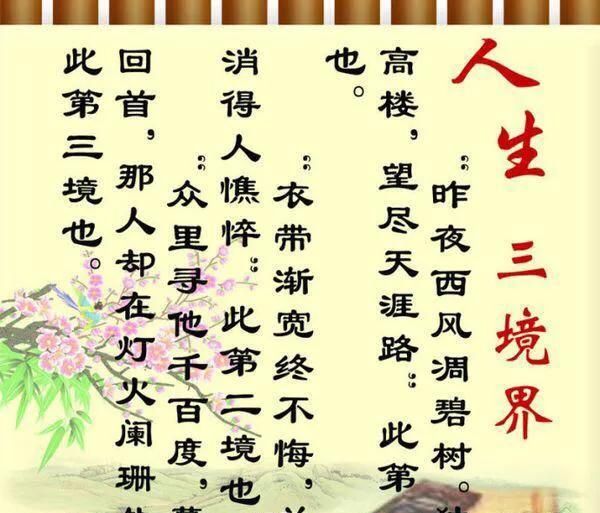 人生 三境界
“昨夜西风凋碧树。
高楼，望尽天涯路”此第
也。
“衣带渐宽终不悔，
消得人憔悴”此第二境也
“众里寻他千百度，
回首，那人却在灯火阑珊
此第三境也。